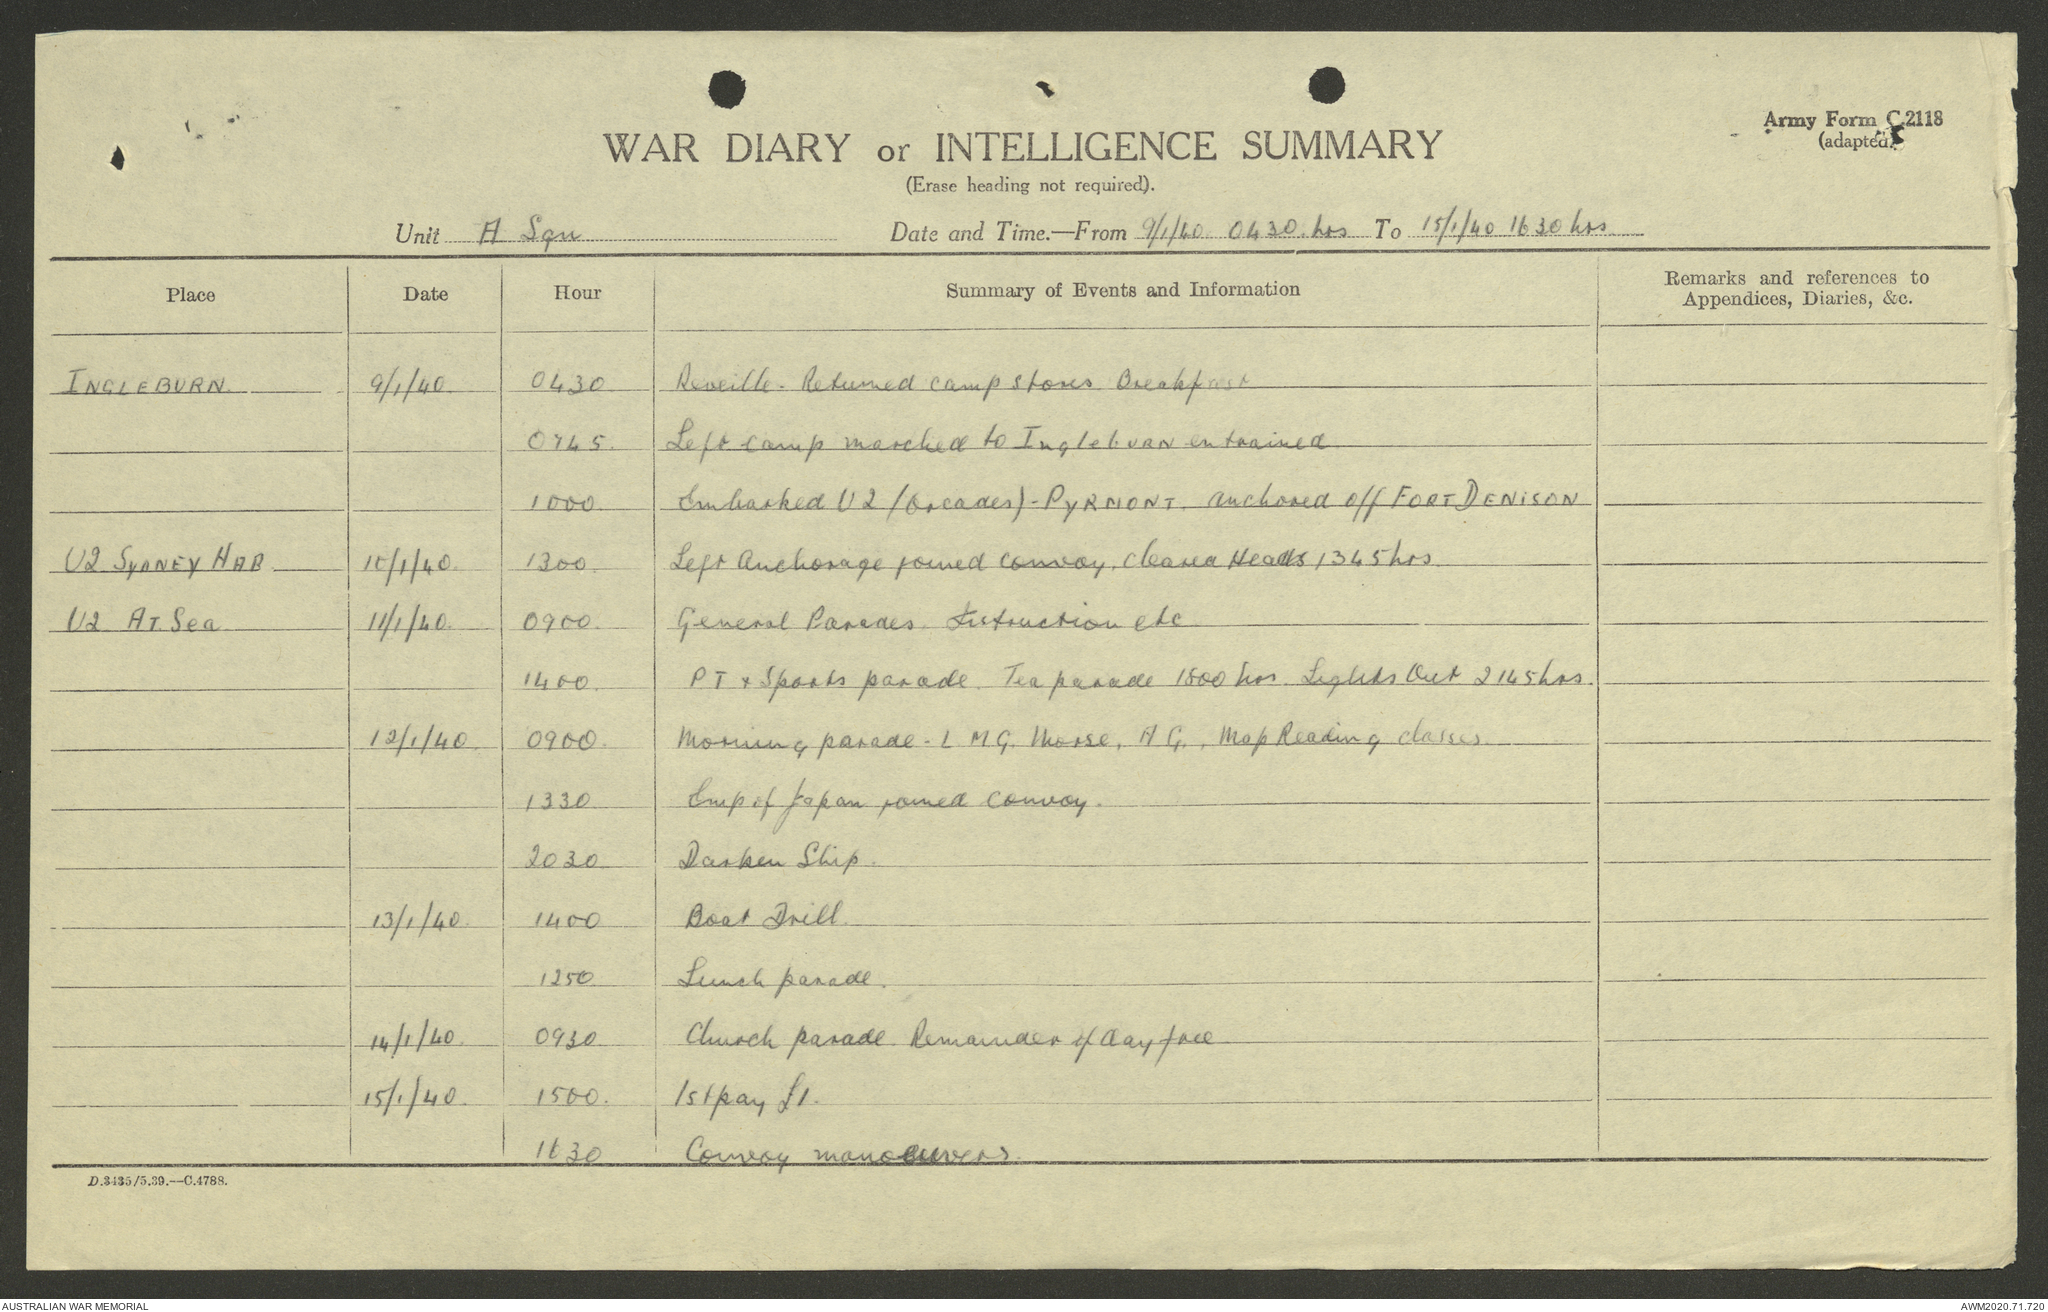 Army Form C.2118
(adapted)
WAR DIARY or INTELLIGENCE SUMMARY
(Erase heading not required).
Unit A Sqn Date and Time.—From 9/1/40 0430 hrs To 15/1/40 1630 hrs
Place Date Hour Summary of Events and Information Remarks and references to Appendices, Diaries, &c.
INGLEBURN 9/1/40 0430 Reveille - Returned camp stores Breakfast
0745 Left camp marched to Ingleburn entrained
1000 Embarked U2 (Orcades) - PYRMONT. anchored off FORT DENISON
U2 SYDNEY HAB 10/1/40 1300 Left Anchorage joined convoy. cleared Heads 1345 hrs
U2 AT Sea 11/1/40 0900 General Parades Instruction etc
1400 PT + Sports parade Tea parade 1800 hrs Lights Out 2145 hrs.
12/1/40 0900 Morning parade - L M G. Morse, A G., Map Reading classes
1330 Emp of Japan joined convoy.
2030 Darken Ship.
13/1/40 1400 Boat Drill
1250 Lunch parade.
14/1/40 0930 Church parade Remainder of day free
15/1/40 1500 1st pay £1.
1630 Convoy manoeuvers.
D.3435/5.39.—C.4788.
AUSTRALIAN WAR MEMORIAL AWM2020.71.720